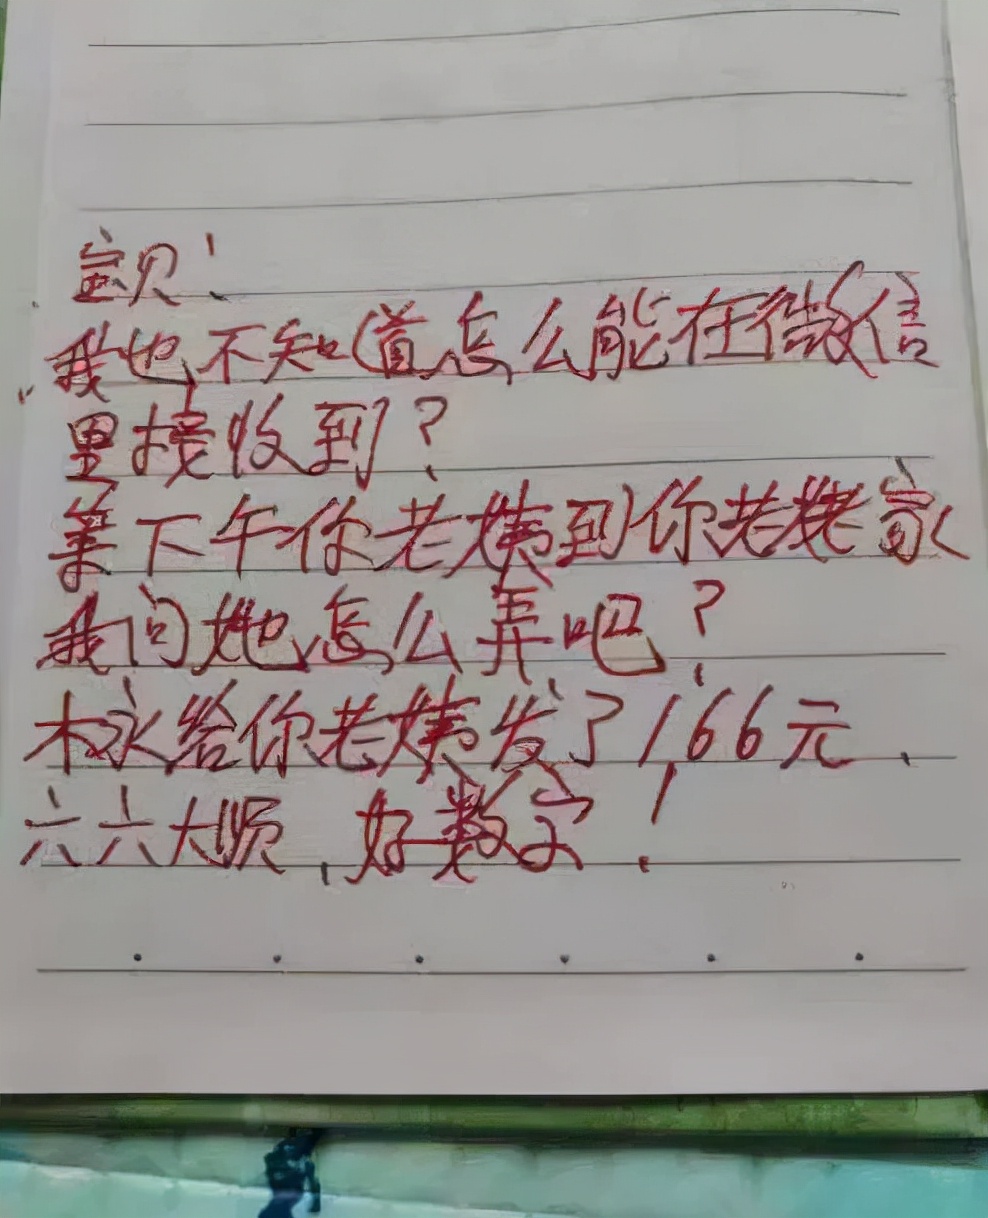 宝贝！
我也不知道怎么能在微信
里接收到？
等下午你老姨到你老姥家
我问她怎么弄吧？
木永给你老姨发了166元、
六六大顺，好数字！